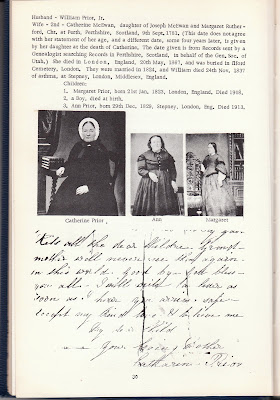 Husband - William Prior, Jr.
Wife - 2nd - Catherine McEwan, daughter of Joseph McEwan and Margaret Ruther-
ford, Chr. at Perth, Perthshire, Scotland, 9th Sept. 1781. (This date does not agree
with her statement of her age, and a different date, some four years later, is given
by her daughter at the death of Catherine. The date given is from Records sent by a
Genealogist searching Records in Perthshire, Scotland, in behalf of the Gen. Soc. of
Utah.) she died in London, England, 20th May, 1867, and was buried in Ilford
Cemetery, London. They were married in and William died 24th Nov. 1837
of asthma, at Stepney, London, Middlesex, England.
Children:
1. Margaret Prior, born 21st Jan. 1823, London, England, Died 1908.
2. a Boy, died at birth.
3. Ann Prior, born 29th Dec. 1829, Stepney, London, Eng. Died 1913.
Catherine Prior
Ann
Margaret
Kiss all the dear children Grand-
mother will never see them again
in this world. good by God bless
you all. I will write to hear as
soon as I hear you arrive safe
accept my best love & believe me
my dear child
Your loving Mother
Catharine Prior